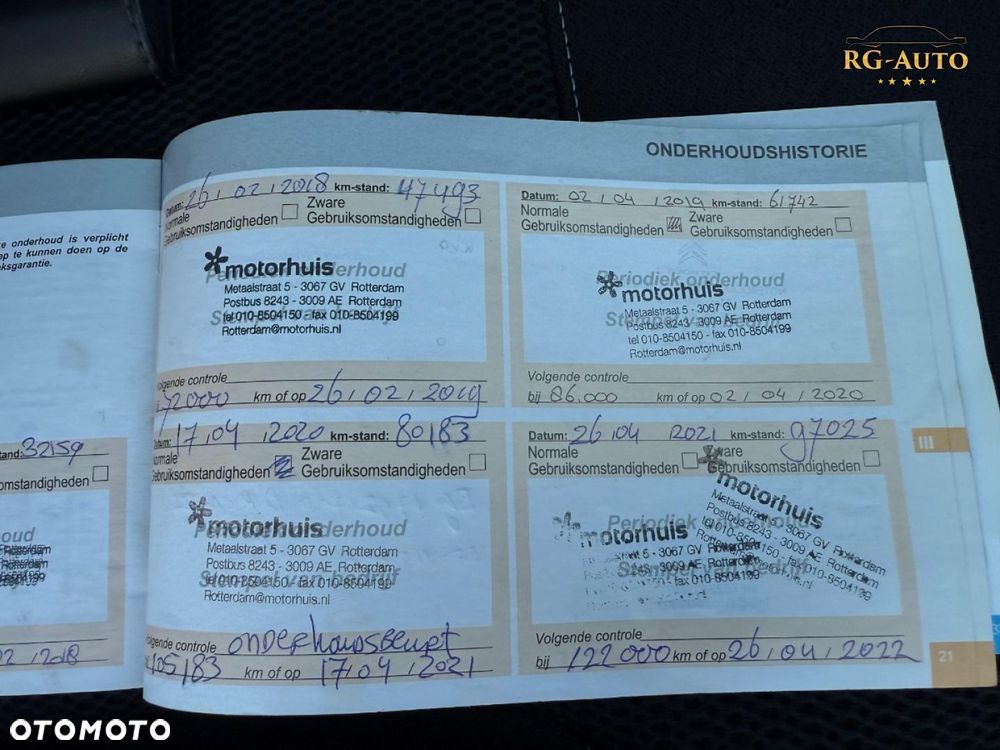 RG-AUTO
ONDERHOUDSHISTORIE
e onderhoud is verplicht
ep te kunnen doen op de
ksgarantie.
tand: 32159
omstandigheden
oud
02 / 2018
Datum: 26 / 02 / 2018 km-stand: 47493
Normale
Gebruiksomstandigheden
Zware
Gebruiksomstandigheden
Periodiek onderhoud
motorhuis
Metaalstraat 5 - 3067 GV Rotterdam
Postbus 8243 - 3009 AE Rotterdam
tel 010-8504150 - fax 010-8504199
Rotterdam@motorhuis.nl
Volgende controle
72000 km of op 26 / 02 / 2019
Datum: 02 / 04 / 2019 km-stand: 61742
Normale
Gebruiksomstandigheden
Zware
Gebruiksomstandigheden
Periodiek onderhoud
motorhuis
Metaalstraat 5 - 3067 GV Rotterdam
Postbus 8243 - 3009 AE Rotterdam
tel 010-8504150 - fax 010-8504199
Rotterdam@motorhuis.nl
Volgende controle
bij 86.000 km of op 02 / 04 / 2020
Datum: 17 / 04 / 2020 km-stand: 80183
Normale
Gebruiksomstandigheden
Zware
Gebruiksomstandigheden
Periodiek onderhoud
motorhuis
Metaalstraat 5 - 3067 GV Rotterdam
Postbus 8243 - 3009 AE Rotterdam
Stempel van bedrijf
tel 010-8504150 - fax 010-8504199
Rotterdam@motorhuis.nl
Volgende controle onderhoudsbeurt
105183 km of op 17 / 04 / 2021
Datum: 26 / 04 / 2021 km-stand: 97025
Normale
Gebruiksomstandigheden
Zware
Gebruiksomstandigheden
motorhuis
Metaalstraat 5 - 3067 GV Rotterdam
Postbus 8243 - 3009 AE Rotterdam
tel 010-8504150 - fax 010-8504199
Rotterdam@motorhuis.nl
Periodiek
motorhuis
straat 5 - 3067 GV Rotterdam
8243 - 3009 AE Rotterdam
- fax 010-8504199
Volgende controle
bij 122000 km of op 26 / 04 / 2022
III
21
OTOMOTO